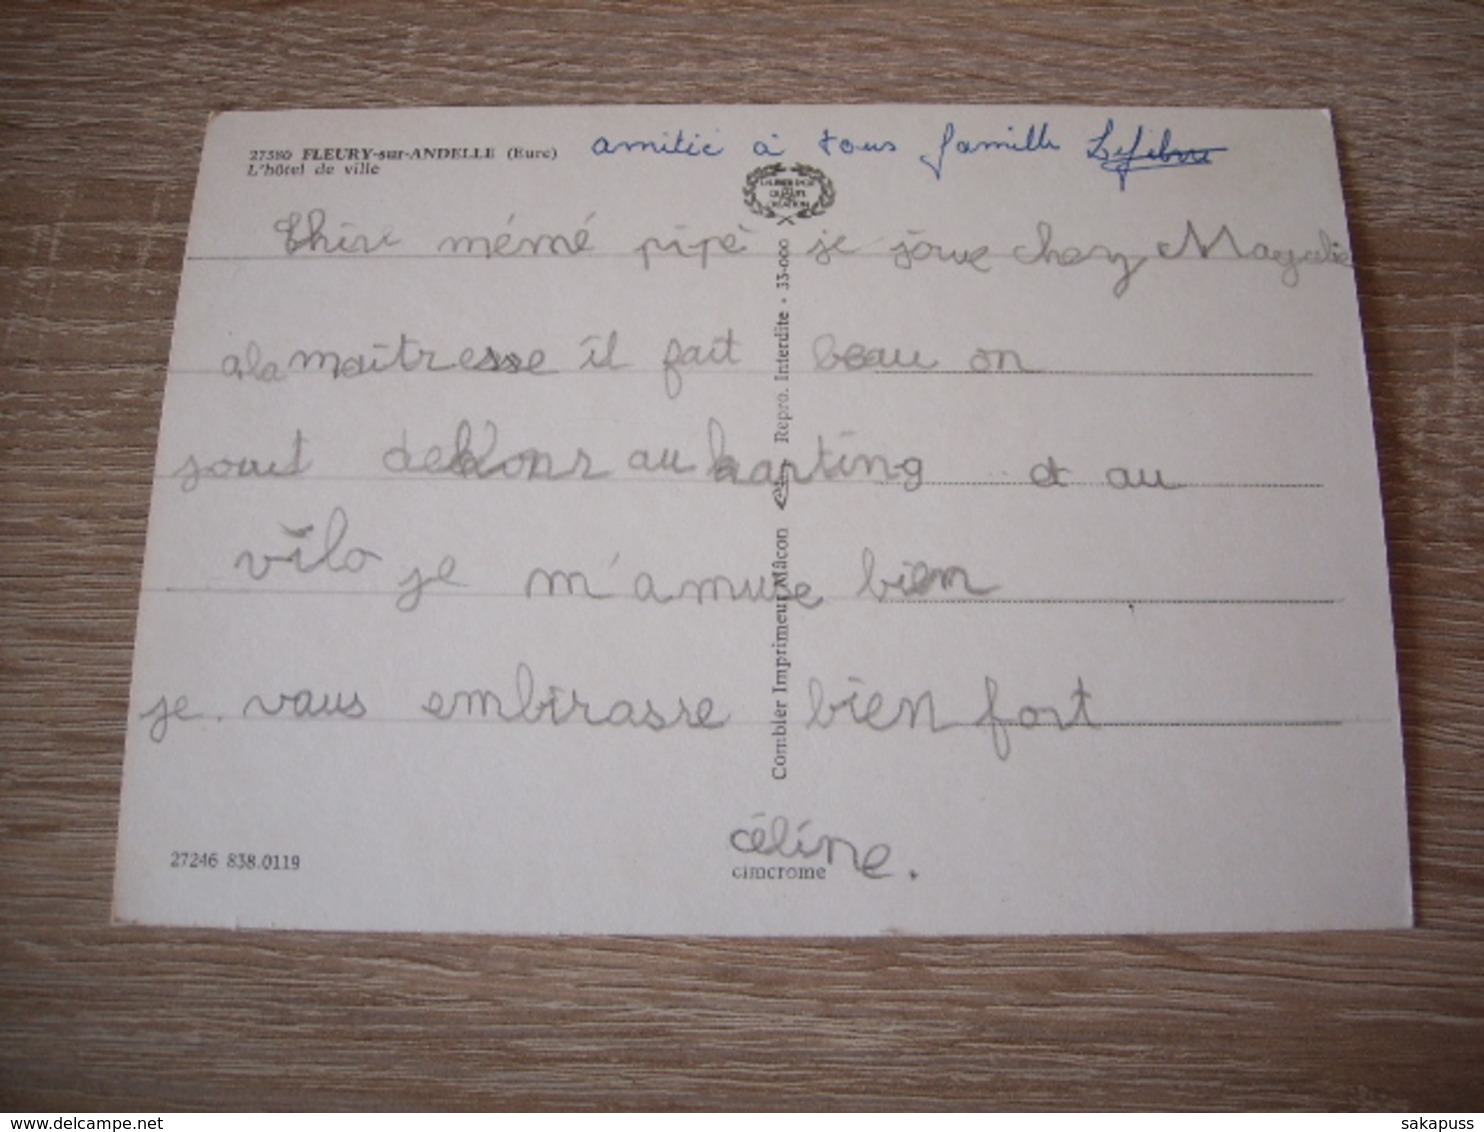 27380 FLEURY-sur-ANDELLE (Eure)
L'hôtel de ville
amitié à tous famille Lefebvre
Chire mémé pipé je joue chez Magalie
a la maitresse il fait beau on
jouet dehonr au karting et au
vilo je m'amuse bien
je vous embirasse bien fort
céline.
Combier Imprimeur Mâcon
Repro. Interdite - 33-000
27246 838.0119
cimcrome
delcampe.net
sakapuss